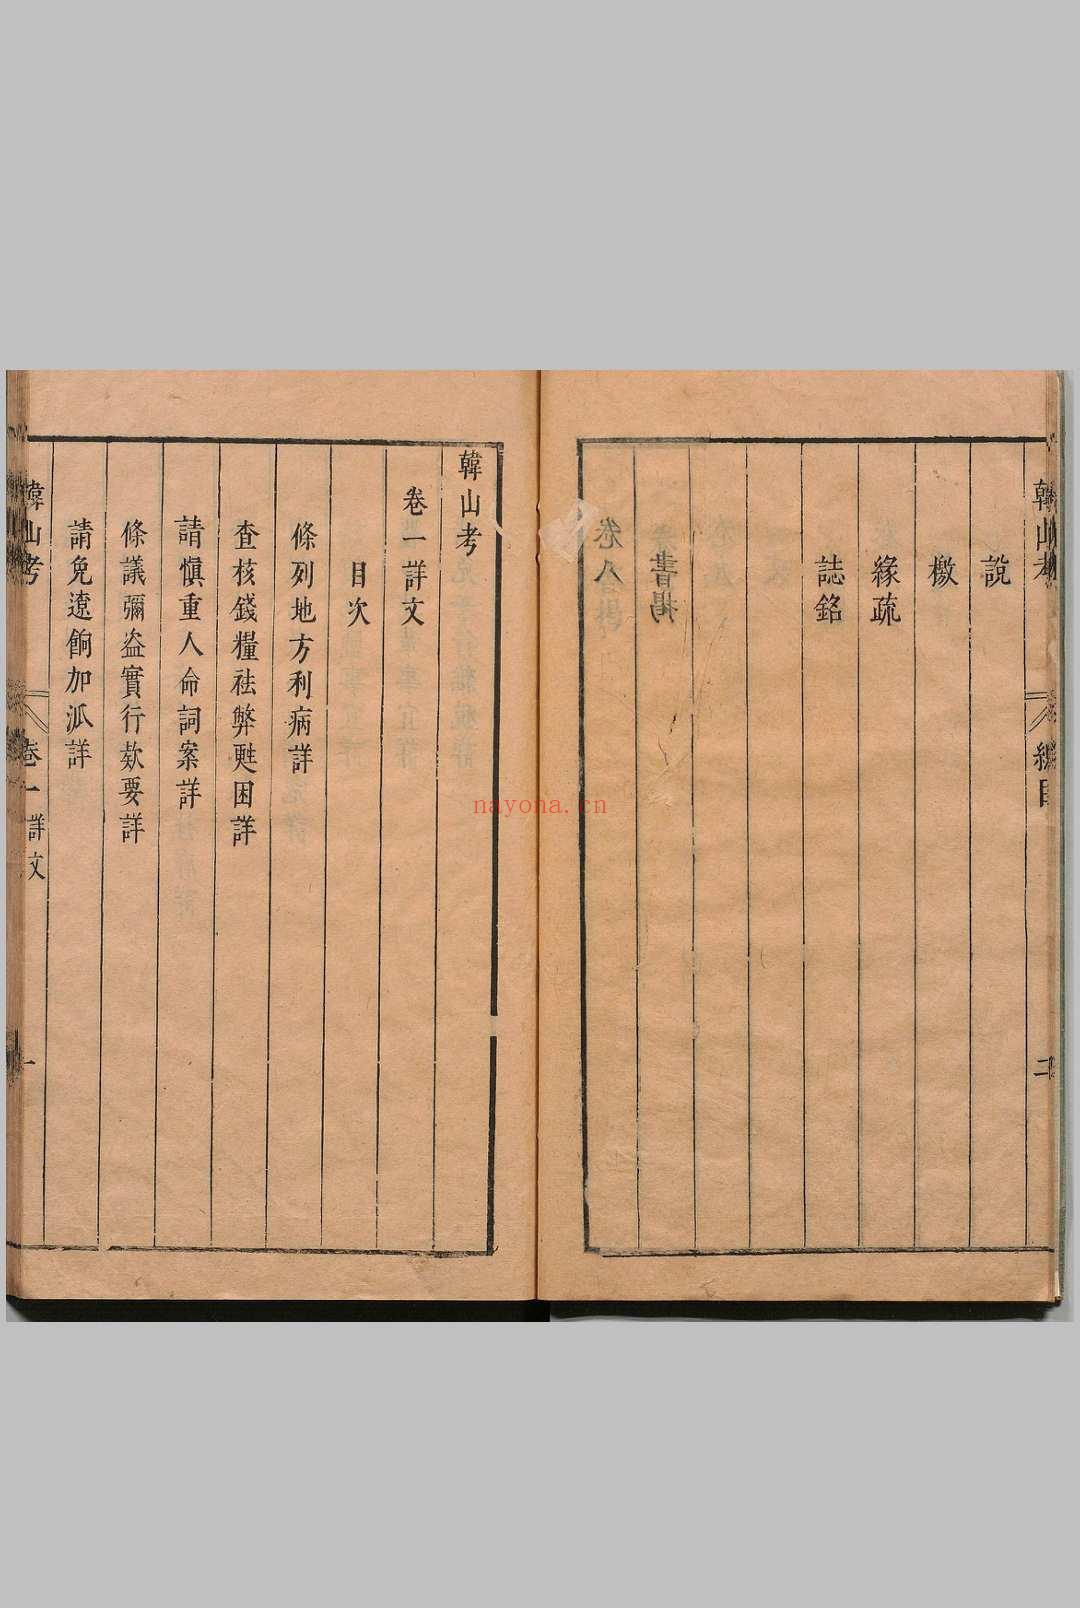 韓山考
總目
二
說
檄
緣疏
誌銘
書揭
卷八
韓山考
卷一詳文
目次
條列地方利病詳
查核錢糧祛弊甦困詳
請愼重人命詞案詳
條議彌盜實行欵要詳
請免遼餉加派詳
韓山考
卷一 詳文
一
nayona.cn